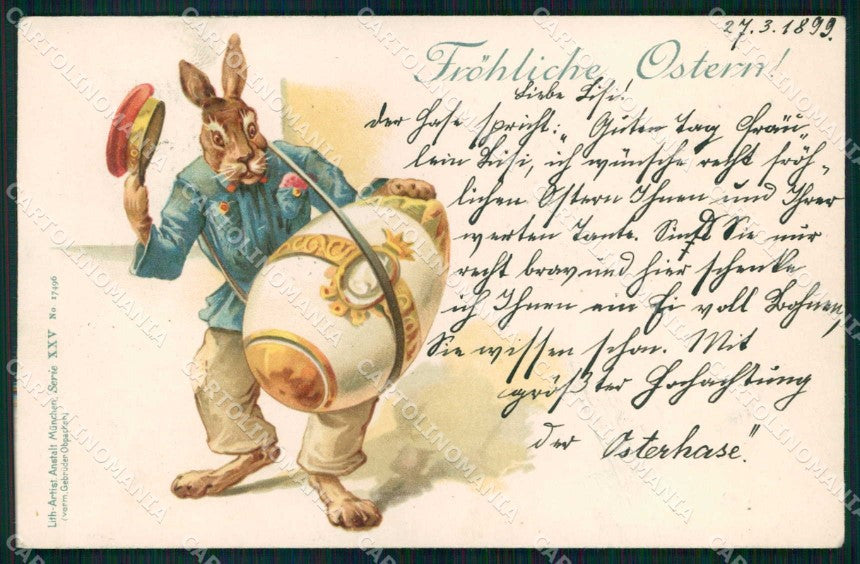 27.3.1899.
Fröhliche Ostern!
Liebe Lisi!
der Hase spricht: „Guten Tag Fräu-
lein Lisi, ich wünsche recht fröh-
lichen Ostern Ihnen und Ihrer
werten Tante. Sind Sie nur
recht brav und hier schenke
ich Ihnen ein Ei voll Bohnen,
Sie wissen schon. Mit
größter Hochachtung
der Osterhase".
Lith.-Artist. Anstalt München, Serie XXV No 17496
(vorm. Gebrüder Obpacher)
CARTOLINOMANIA